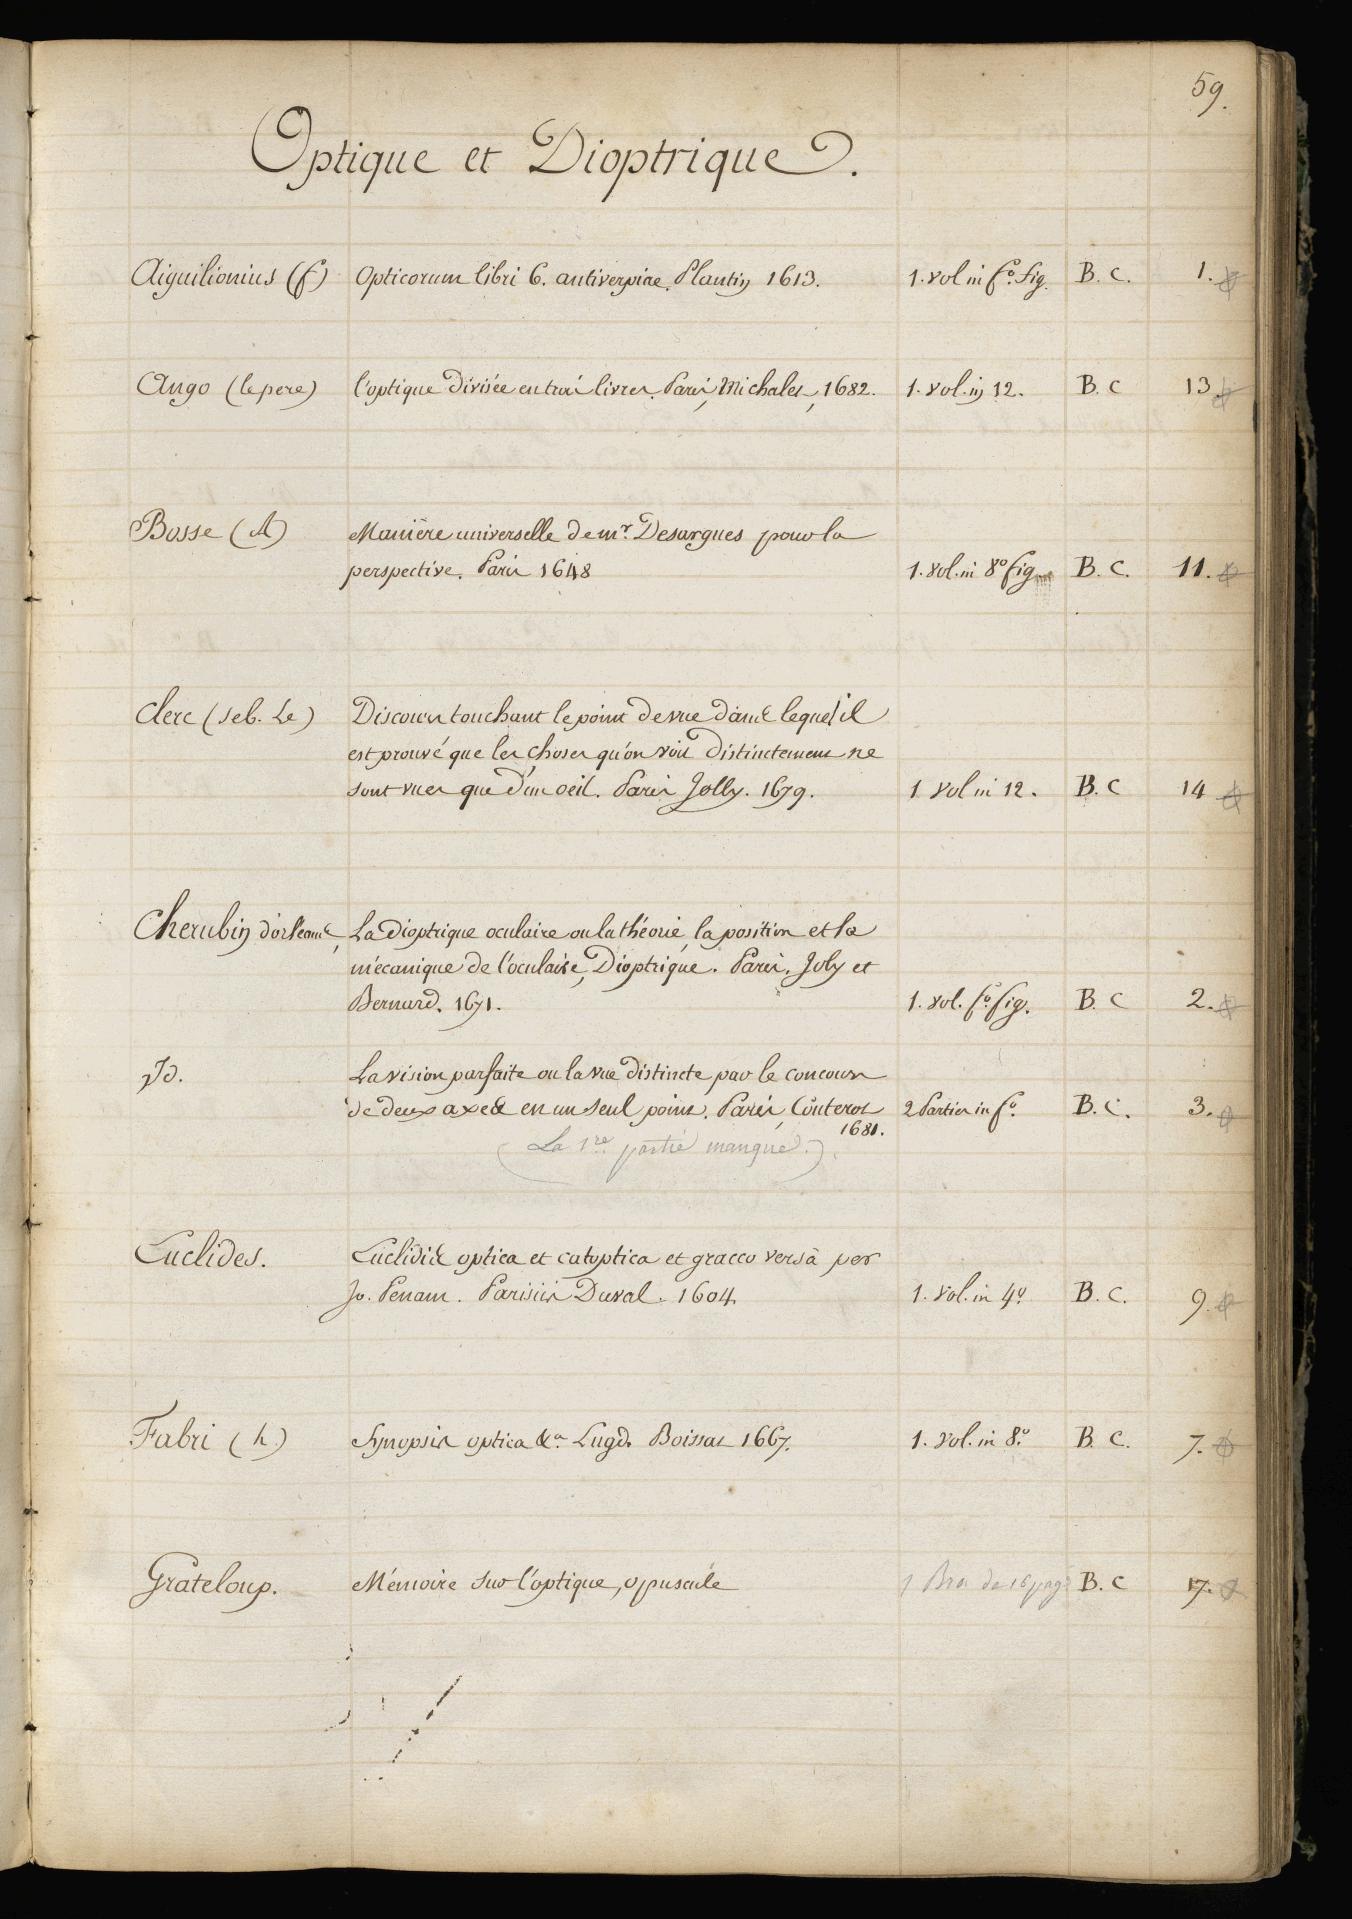 59.
Optique et Dioptrique.
Aiguilionius (f) Opticorum libri 6. antiverpiae. Plantin 1613. 1. vol in f.º fig. B. C. 1.
Ango (le pere) l'optique divisée en trois livres. Paris, Michales, 1682. 1. vol. in 12. B. C 13
Bosse (A) Manière universelle de mr. Desargues pour la
perspective. Paris 1648 1. vol. in 8º fig B. C. 11.
Clerc (seb. Le) Discours touchant le point de vue dans lequel il
est prouvé que les choses qu'on voit distinctement ne
sont vues que d'un oeil. Paris Jolly. 1679. 1 vol in 12. B. C 14
Cherubin d'orléans, La Dioptrique oculaire ou la théorie, la position et la
mécanique de l'oculaire, Dioptrique. Paris. Joly et
Bernard. 1671. 1. vol. fº. fig. B. C 2.
Id. La vision parfaite ou la vue distincte par le concours
de deux axes en un seul point. Paris, Couterot 2 Parties in fº. B. C. 3.
1681.
(La 1re. partie manque.)
Euclides. Euclidis optica et catoptica et gracco versà per
Jo. Penam. Parisiis Duval. 1604 1. vol. in 4º B. C. 9.
Fabri (h.) Synopsis optica &a. Lugd. Boissat 1667. 1. vol. in 8.º B. C. 7.
Grateloup. Mémoire sur l'optique, opuscule 1 Bro. de 16 pages B. C 17.